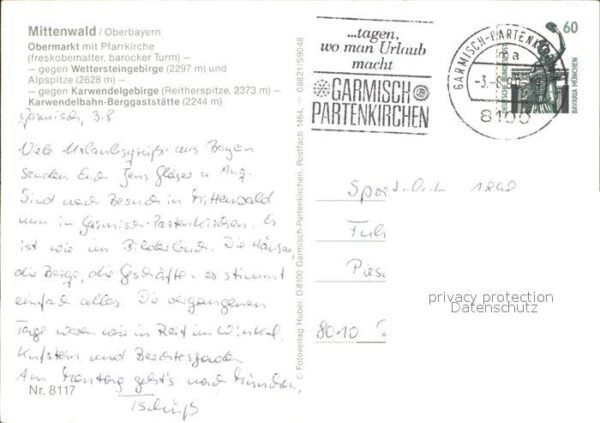 Mittenwald / Oberbayern
Obermarkt mit Pfarrkirche
(freskobemalter, barocker Turm) –
– gegen Wettersteingebirge (2297 m) und
Alpspitze (2628 m) –
– gegen Karwendelgebirge (Reitherspitze, 2373 m) –
– Karwendelbahn-Berggaststätte (2244 m)
Garmisch, 3.8
Viele Urlaubsgrüße aus Bayern
senden Euch Jens Gläser u.
Sind nach Besuch in Mittenwald
nun in Garmisch-Partenkirchen. Es
ist wie im Bilderbuch. Die Häuser,
die Berge, die Geschäfte – es stimmt
einfach alles. Die vergangenen
Tage waren wir in Reit im Winkel,
Kufstein und Berchtesgaden
Am Montag geht's nach München.
Tschüß
Nr. 8117
© Fotoverlag Huber, D-8100 Garmisch-Partenkirchen, Postfach 1464, ☏ 08821/59048
...tagen,
wo man Urlaub
macht
GARMISCH
PARTENKIRCHEN
GARMISCH-PARTENK
ma
-3.-8.
8100
60
DEUTSCHE BUNDESPOST
BAVARIA MÜNCHEN
8010
privacy protection
Datenschutz